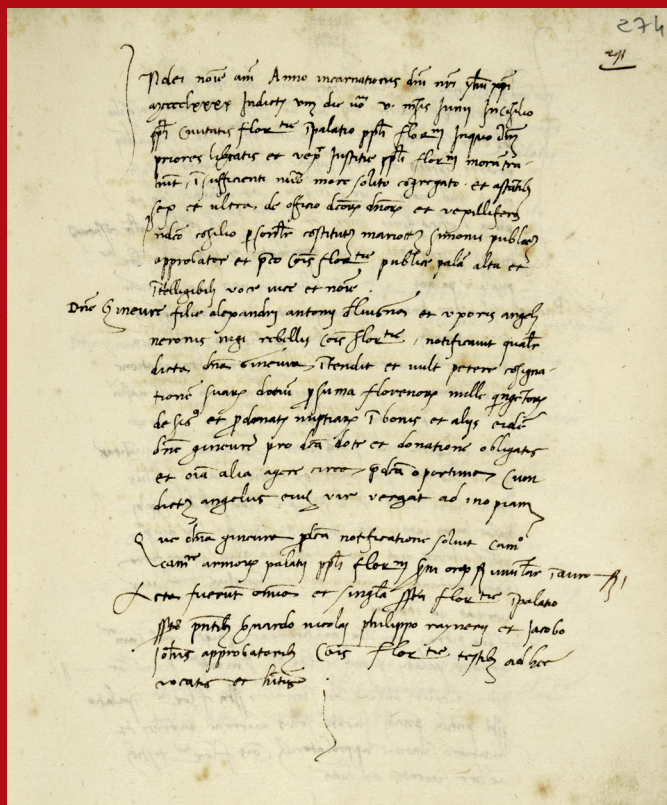 274
291
Indei noie am Anno incarnationis dni nri yhu xpi
mcccclxxxx Indict viii die vo v mesis Junii In cosilio
ppli Civitatis flor tie i palatio ppli florni in quo dni
priores libtatis et vex Justitie ppli florni moram tra
hut, i sufficienti nuo more solito cogregato et astatib
sex et ultra de officio dcorum dnorum et vexilliferi
indco cosilio psonlr costitutz mariottz simonis publicz
approbator et pco Cois flor tie publice pala alta et
itelligibili voce vice et noie
Dne Gineure filie alexandri antonii et uxoris angeli
neronis nigi rebellis Cois flor tie, notificavit qualr
dicta dna gineura itendit et vult petere cosigna-
tione suarum dotiu p suma florenorum mille qngetorum
de sigo et pdonatz nuptiarum i bonis et aliis eidem
dne gineure pro dca dote et donatione obligatis
et oia alia agere circa pdca oportuna Cum
dictz angelus eius vir vergat ad inopiam
Que dna gineura pdca notificatione soluit camo
came armorum palatii ppli florni i auro f 1
Acta fuerunt omia et singla sta flor tie i palatio
sto pntib bnardo nicolai philippo raynerii et Jacobo
Johis approbatorib Cois flor tie testib ad hec
vocatis et hitis